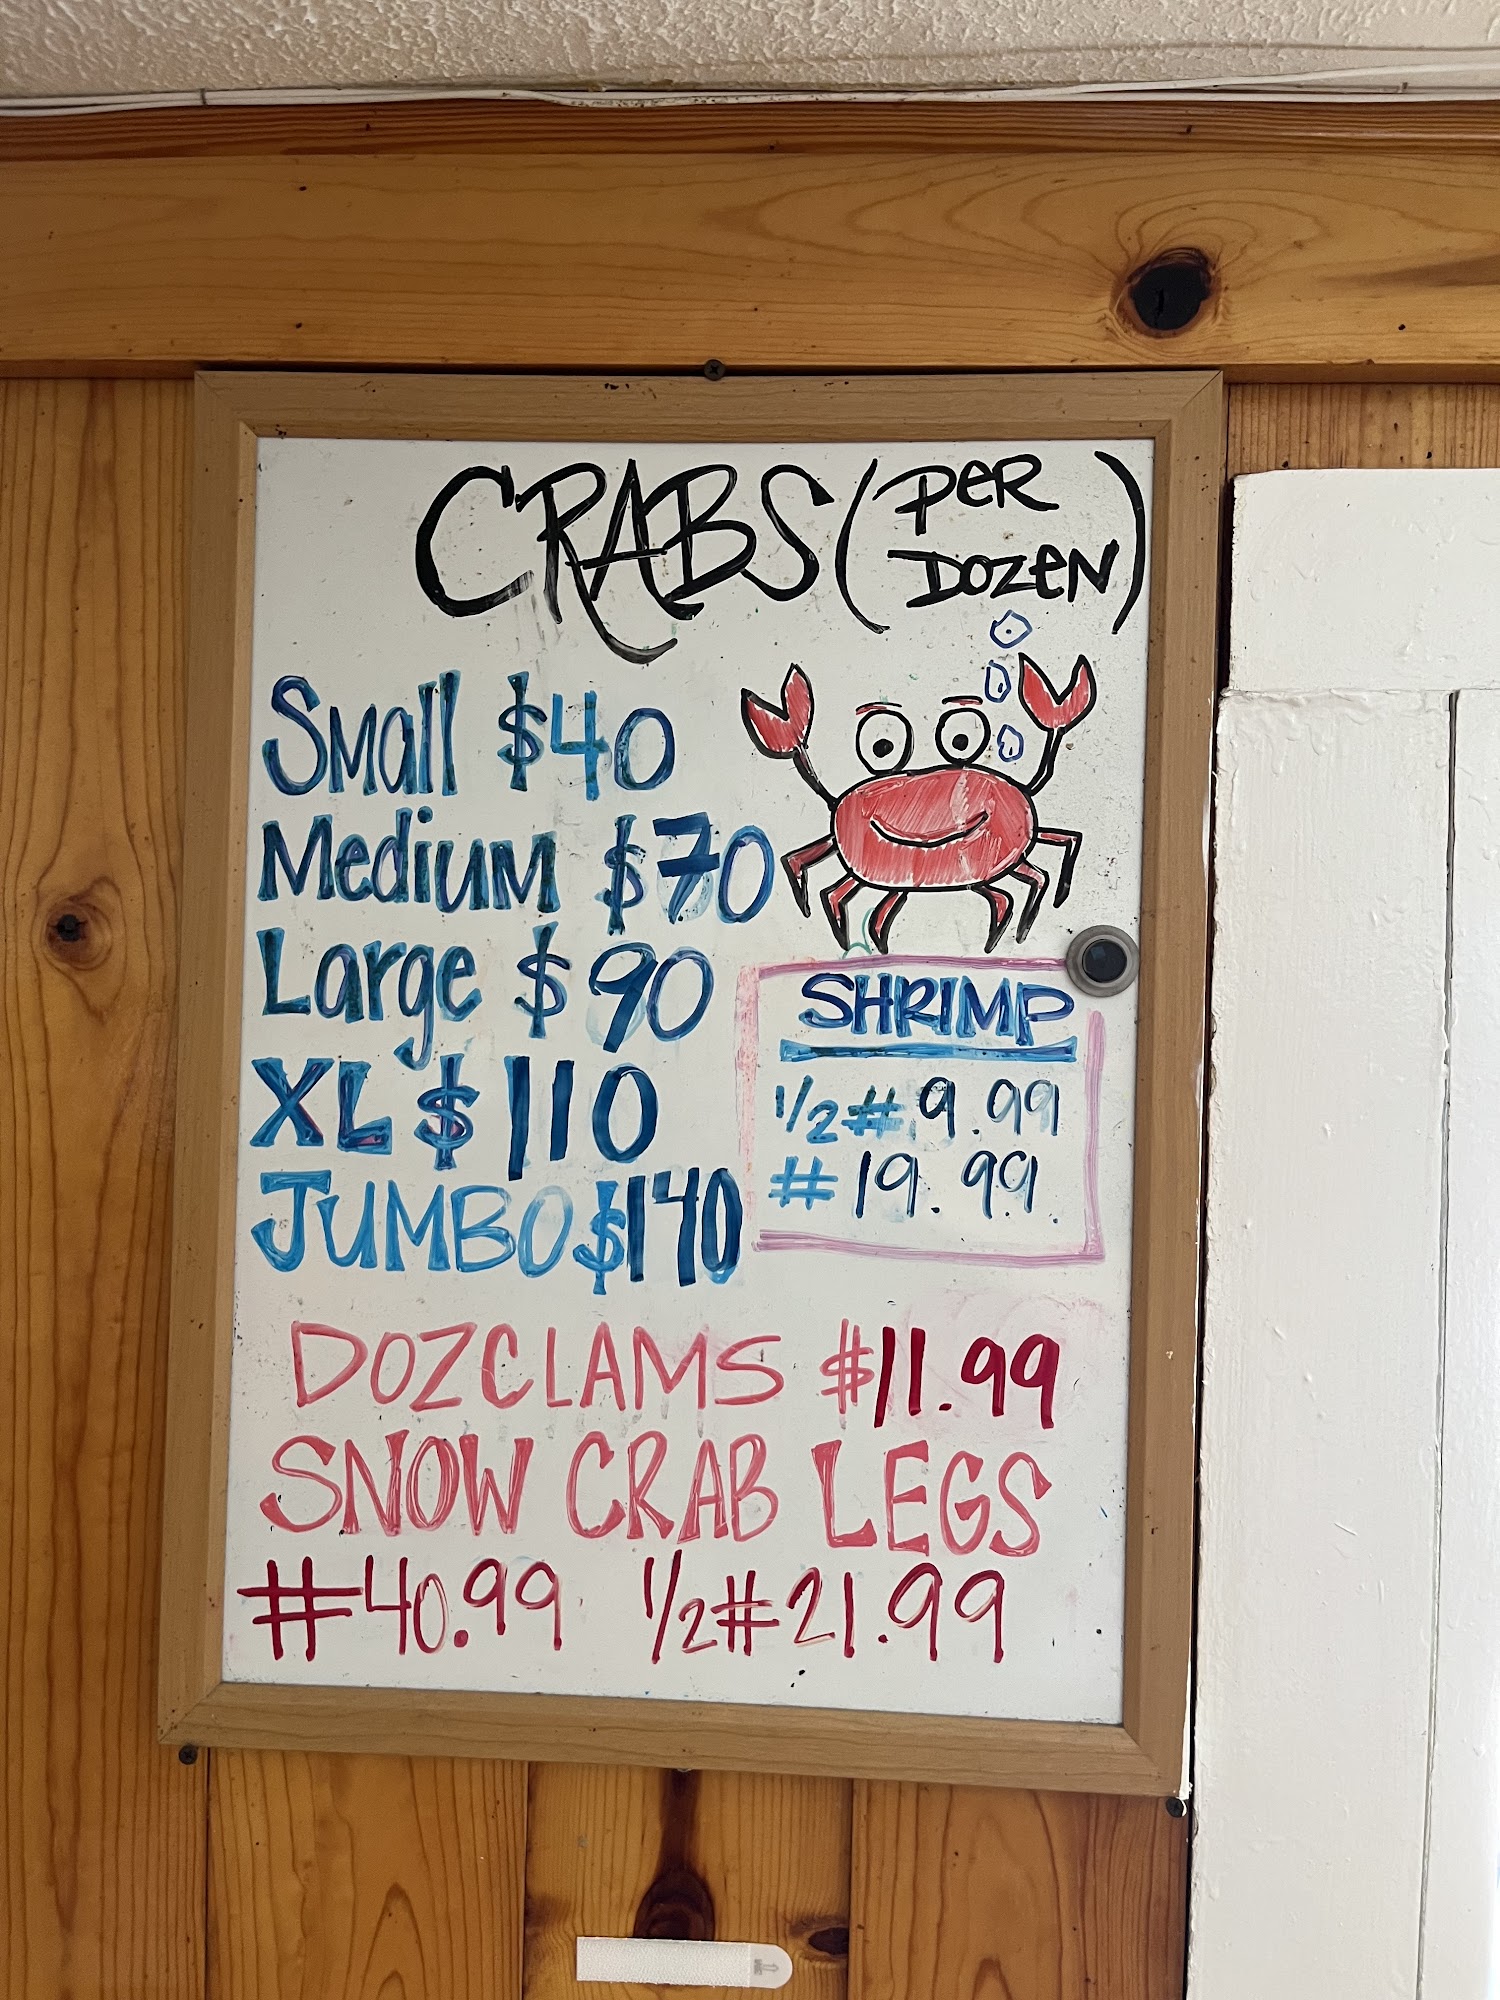 CRABS (PER DOZEN)
Small $40
Medium $70
Large $90
XL $110
JUMBO $140
SHRIMP
1/2 # 9.99
# 19.99
DOZ CLAMS $11.99
SNOW CRAB LEGS
#40.99 1/2 #21.99